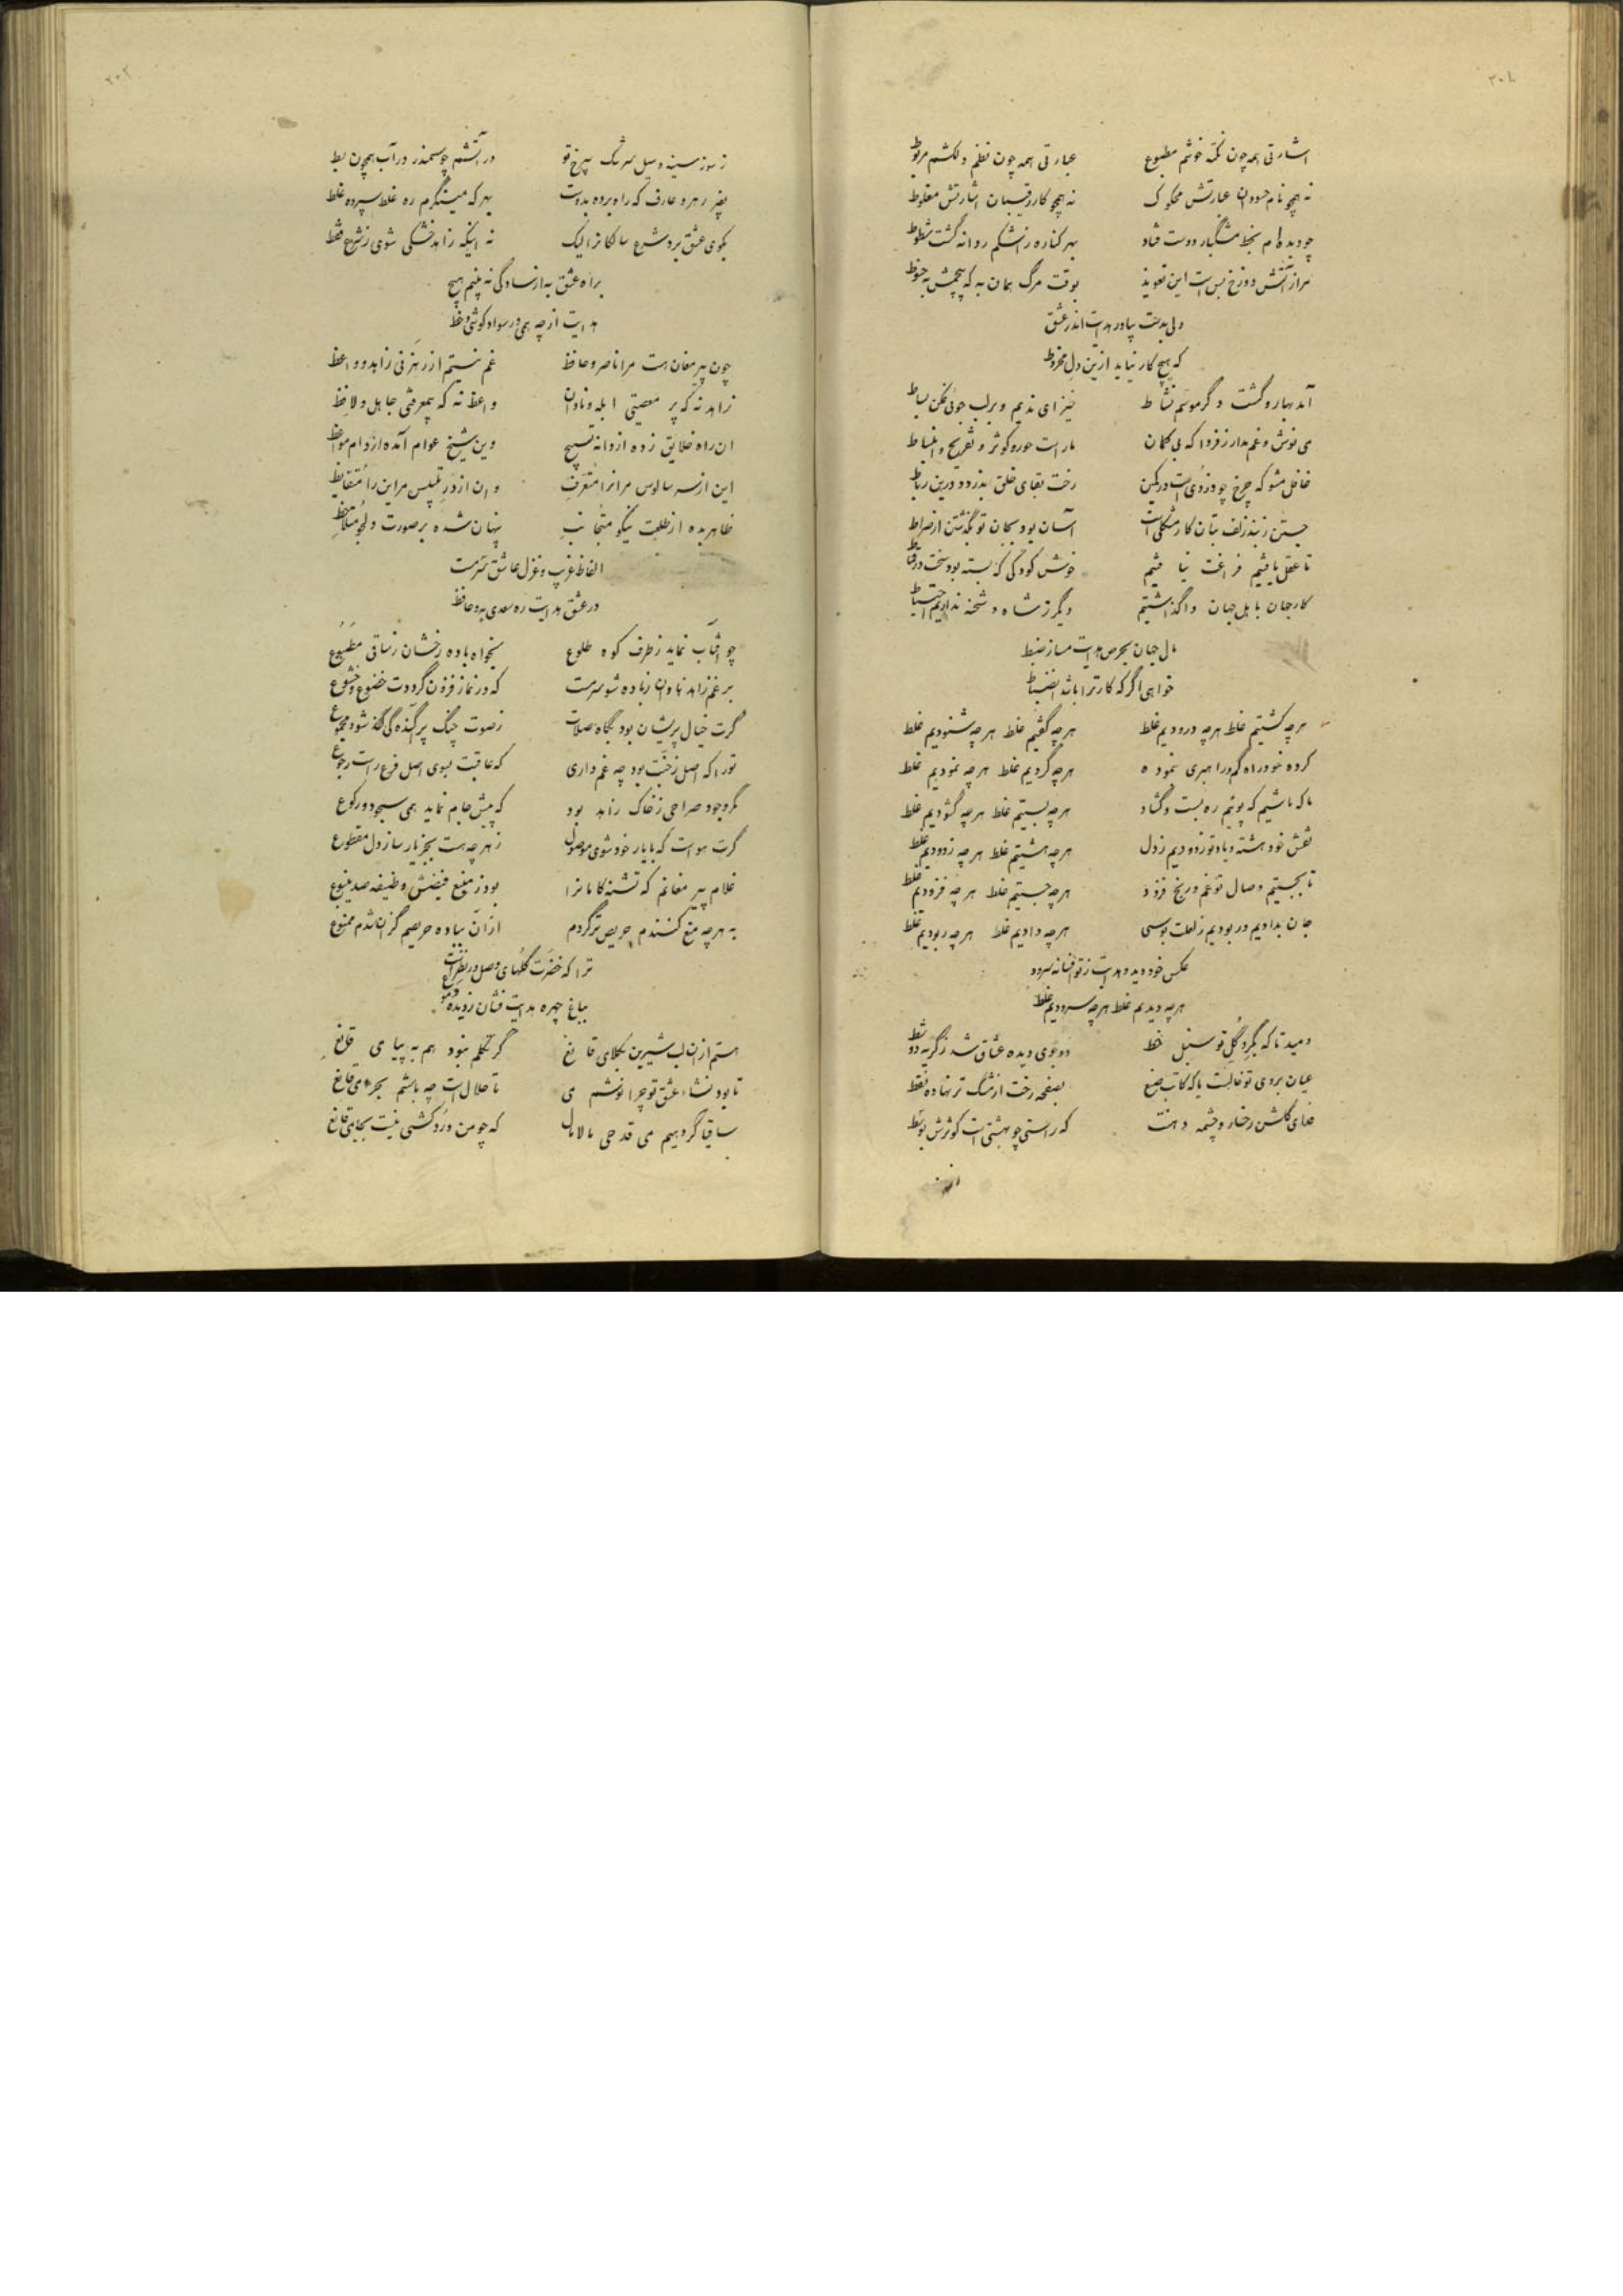 اشارتی همه چون نکته خوشم مطبوع عبارتی همه چون نظم دلکشم مربوط
نه همچو نام حسودان عبارتش محکوک نه همچو کار رقیبان اشارتش مغلوط
چو دیده‌ام بخط مشگبار دوست فتاد بهر کناره ز اشکم روانه گشت شطوط
مرا ز آتش دوزخ بس است این تعویذ بوقت مرگ همان به که پیچمش به حنوط
دلی بدست بیاور هدایت اندر عشق
که هیچ کار نیاید ازین دل مخروط
آمد بهار و گشت دگر موسم نشاط خیز ای ندیم و بر لب جوئی فکن بساط
می نوش و غم مدار ز فردا که بی گمان ما راست حور و کوثر و تفریح و انبساط
غافل مشو که چرخ چو دزدی است در کمین رخت بقای خلق بدزدد درین رباط
جستن ز بند زلف بتان کار مشکلی است آسان بود بجان تو بگذشتن از صراط
تا عقل یافتیم فراغت نیافتیم خوش کودکی که بسته بود سخت در قماط
کار جهان باهل جهان واگذاشتیم دیگر ز شاه و شحنه نداریم احتیاط
مال جهان بحرص هدایت مساز ضبط
خواهی اگر که کار ترا باشد انضباط
هرچه کشتیم غلط هرچه درودیم غلط هرچه گفتیم غلط هرچه شنودیم غلط
کرده خود راه گم و راهبری نموده هرچه کردیم غلط هرچه نمودیم غلط
ما که باشیم که پوئیم ره بست و گشاد هرچه بستیم غلط هرچه گشودیم غلط
نقش خود هشته و یاد تو زدودیم ز دل هرچه هشتیم غلط هرچه زدودیم غلط
تا بجستیم وصال تو غم و رنج فزود هرچه جستیم غلط هرچه فزودیم غلط
جان بدادیم و ربودیم ز لعلت بوسی هرچه دادیم غلط هرچه ربودیم غلط
عکس خود دید هدایت ز تو افسانه سرود
هرچه دیدیم غلط هرچه سرودیم غلط
دمید تا که بگرد گل تو سنبل خط دو جوی دیده عشاق شد ز گریه دو شط
عیان بروی تو خالست یا که کاتب صنع بصفحه رخت از مشک تر نهاده نقط
فدای گلشن رخسار و چشمه دهنت که راستی چو بهشتی است کوثرش بوسط
ز سوز سینه و سیل سرشک بیرخ تو در آتشم چو سمندر در آب همچون بط
بغیر رهرو عارف که راه برده بدوست بهر که مینگرم ره غلط سپرده غلط
بکوی عشق برد شرع سالکانرا لیک نه اینکه زاهد خشکی شوی ز شرع فقط
براه عشق به از سادگی نه بینم هیچ
هدایت از چه همی در سواد کوشی و خط
چون پیر مغان هست مرا ناصر و حافظ غم نیستم از رهزنی زاهد و واعظ
زاهد نه که پر معصیتی ابله و نادان واعظ نه که بیمعرفتی جاهل و لافظ
ان راه خلایق زده از دانه تسبیح وین شیخ عوام آمده از دام مواعظ
این از سر سالوس مر انرا متعرف وان از در تلبیس مر این را متقایظ
ظاهر بده از طلعت نیکو متجانب پنهان شده بر صورت دلجو متلاحظ
الفاظ غریب و غزل عاشق سرمست
در عشق هدایت ره سعدی به و حافظ
چو افتاب نماید ز طرف کوه طلوع بخواه باده رخشان ز ساقی مطبوع
برغم زاهد نادان ز باده شو سرمست که در نماز فزون گرددت خضوع و خشوع
گرت خیال پریشان بود بگاه صلات ز صوت چنگ پراکنده‌گی کند شود مجموع
تورا که اصل ز خنب بود چه غم داری که عاقبت بسوی اصل فرع راست رجوع
مگر وجود صراحی ز خاک زاهد بود که پیش جام نماید همی سجود و رکوع
گرت هواست که با یار خود شوی موصول ز هرچه هست بجز یار ساز دل مقطوع
غلام پیر مغانم که تشنه کامانرا بود ز منبع فیضش وظیفه صد ینبوع
به هرچه منع کنندم حریص تر گردم از آن بباده حریصم گز ان شدم ممنوع
ترا که خضرت گلهای وصل در نظر است
بباغ چهره هدایت فشان ز دیده دموع
هستم از ان لب شیرین بکلامی قانع گر تکلم نبود هم به پیامی قانع
تا بود نشاء عشق تو چرا نوشم می تا حلال است چه باشم بحرامی قانع
ساقیا گر دهیم می قدحی مالامال که چو من دردکشی نیست بجامی قانع